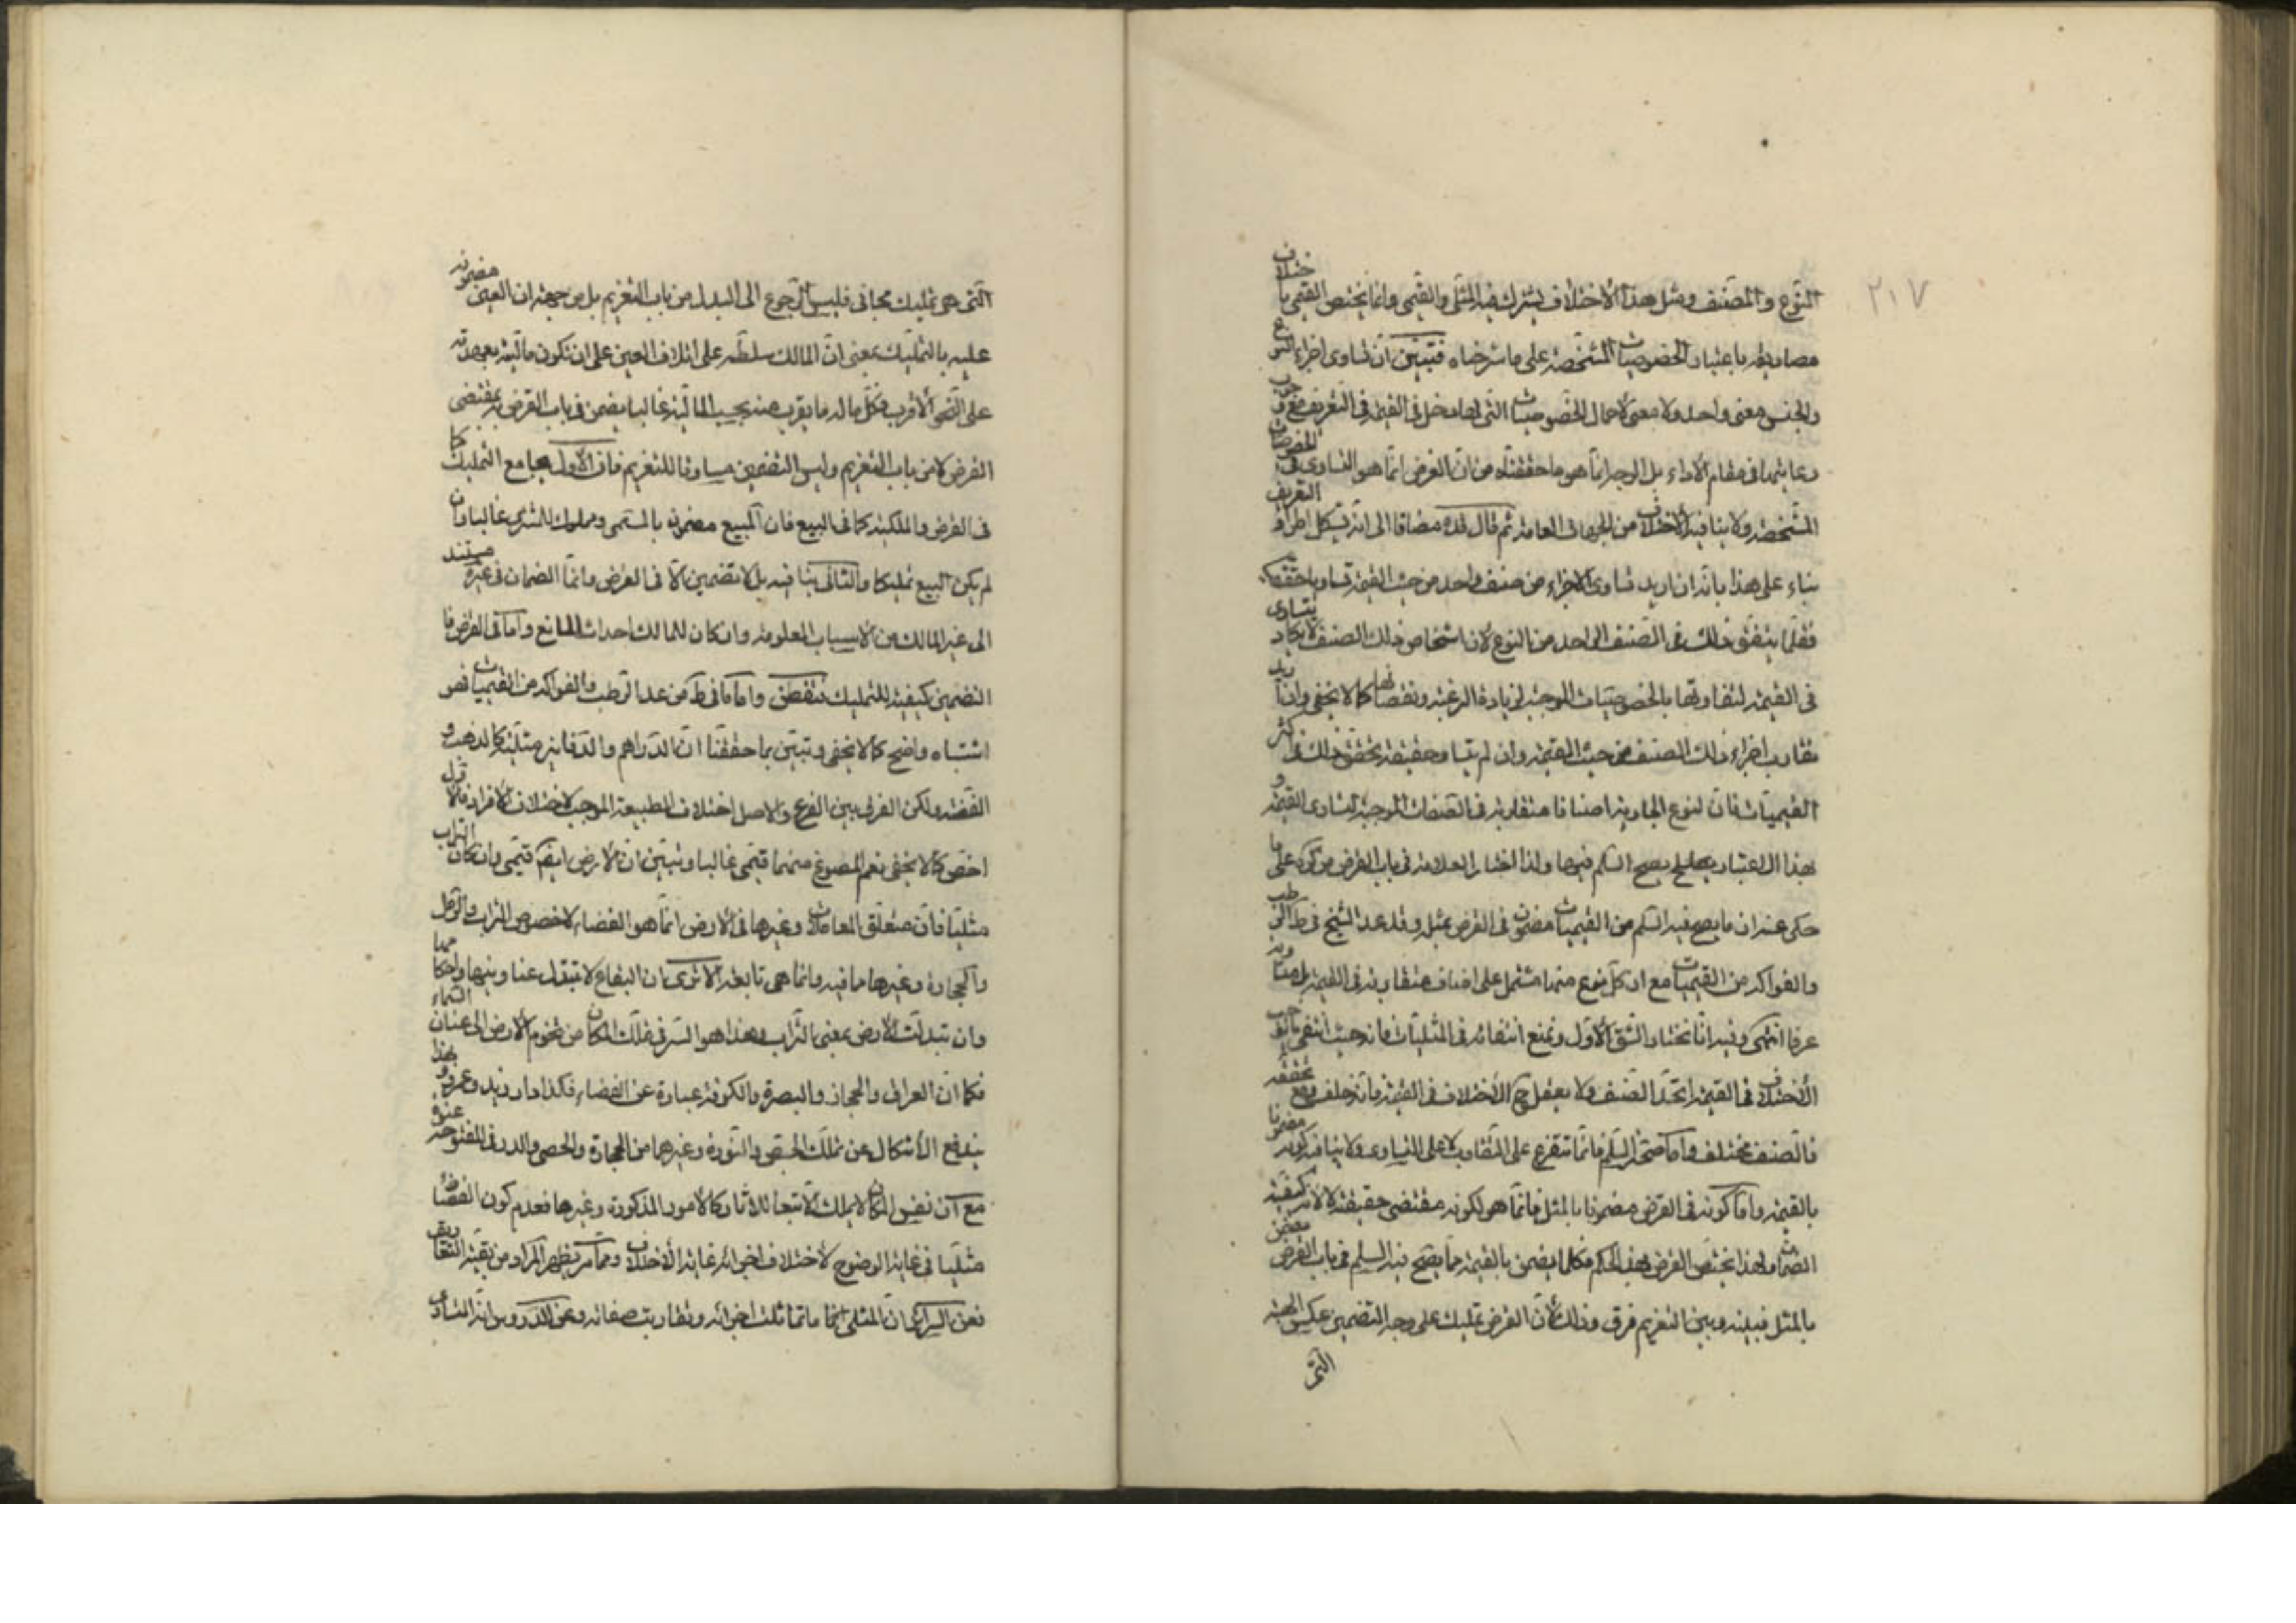 ٢١٧
النوع والمصنف ومثل هذا الاختلاف يشترك فيه المثلى والقيمى وانما يختص القيمى باختلاف
مصاديقه باعتبار الخصوصيات المشخصة على ما شرحناه فتبين ان تساوى اجزاء النوع
والجنس معنى واحد ولا معنى لاهمال الخصوصيات التى لها دخل فى القيمة فى التعريف مع وجوب
رعايتها فى مقام الاداء بل الوجه انما هو ما حققناه من ان الغرض انما هو التساوى فى الخصوصيات
المشخصة ولا ينافيه الاختلاف من الجهات العامة ثم قال مضافا الى انه يشكل اطراد التعريف
بناء على هذا بانه ان اريد تساوى الاجزاء من صنف واحد من حيث القيمة تساويا حقيقيا
فقلما يتفق ذلك فى الصنف الواحد من النوع لان اشخاص ذلك الصنف لا يكاد يتساوى
فى القيمة لتفاوتها بالخصوصيات الموجبة لزيادة الرغبة ونقصانها كما لا يخفى وان اريد
تقارب اجزاء ذلك الصنف من حيث القيمة وان لم يتساو حقيقة تحقق ذلك فى اكثر
القيميات فان لنوع الجارية اصنافا متقاربة فى الصفات الموجبة لتساوى القيمة و
بهذا الاعتبار يصح السلم فيها ولذا اختار العلامة فى باب القرض من كره على ما
حكى عنه ان ما يصح فيه السلم من القيميات مضمون فى القرض بمثله وقد عد الشيخ فى ط الرطب
والفواكه من القيميات مع ان كل نوع منها مشتمل على اصناف متقاربة فى القيمة بل متساوية
عرفا انتهى وفيه انا نختار الشق الاول ونمنع انتفائه فى المثليات فانه حيث انتفى موجب
الاختلاف فى القيمة اتحد الصنف ولا يعقل ح الاختلاف فى القيمة فانه خلف ومع تحققه
فالصنف مختلف واما صحة السلم فانما تتفرع على التقارب لا على التساوى ولا ينافيه كونه مضمونا
بالقيمة واما كونه فى القرض مضمونا بالمثل فانما هو لكونه مقتضى حقيقته لا لانه كيفية
الضمان ولهذا يختص القرض بهذا الحكم فكلما يضمن بالقيمة مما يصح فيه السلم فى باب القرض مضمون
بالمثل فبينه وبين التغريم فرق وذلك لان القرض تمليك على وجه التضمين عكس الهبة
التى
التى هى تمليك مجانى فليس الرجوع الى البدل من باب التغريم بل من جهة ان العين مضمونة
عليه بالتمليك بمعنى ان المالك سلطه على اتلاف العين على ان تكون ماليته بعهدته
على النحو الاقرب فكل ماله ما يقرب منه بحسب المالية غالبا يضمن فى باب القرض به بمقتضى
القرض لا من باب التغريم وليس التضمين مساوقا للتغريم فان الاول يجامع التمليك كما
فى القرض والملكية كما فى البيع فان المبيع مضمون بالمسمى ومملوك للمشترى غالبا وان
لم يكن البيع تمليكا والثانى ينافيه بل لا تضمين الا فى القرض وانما الضمان فى غيره مستند
الى غير المالك من الاسباب المعلومة وان كان للمالك احداث المانع واما فى القرض فا
التضمين كيفية للتمليك فتفطن واما ما فى ط من عد الرطب والفواكه من القيميات فهو
اشتباه واضح كما لا يخفى وتبين بما حققنا ان الدراهم والدنانير مثلية كالذهب و
الفضة ولكن الفرق بين الفرع والاصل اختلاف الطبيعة الموجب لاختلاف الافراد فالاول
اخص كما لا يخفى نعم المصوغ منهما قيمى غالبا وتبين ان الارض ايضا قيمى وان كان التراب
مثليا فان متعلق المعاملات وغيرها فى الارض انما هو الفضاء لا خصوص التراب والرمل
والحجارة وغيرها مما فيه وانما هى تابعة الا ترى ان البقاع لا تتبدل عناوينها واحكامها
وان تبدلت الارض بمعنى التراب وهذا هو السر فى تملك المكان من تخوم الارض الى عنان السماء
فكما ان العراق والحجاز والبصرة والكوفة عبارة عن الفضاء فكذا دار زيد وعمرو وبهذا
يندفع الاشكال عن تملك الجص والنورة وغيرهما من الحجارة والحصى والدر فى المفتوحة عنوة
مع ان نفس المكان لا يملك الا تبعا للاثار كالامور المذكورة وغيرها فعدم كون الفضاء
مثليا فى غاية الوضوح لاختلاف اجزائه غاية الاختلاف ومما مر يظهر المراد من بقية التعاريف
فعن السرائر ان المثلى انما ما تماثلت اجزائه وتقاربت صفاته وعن الدروس انه المتساوى